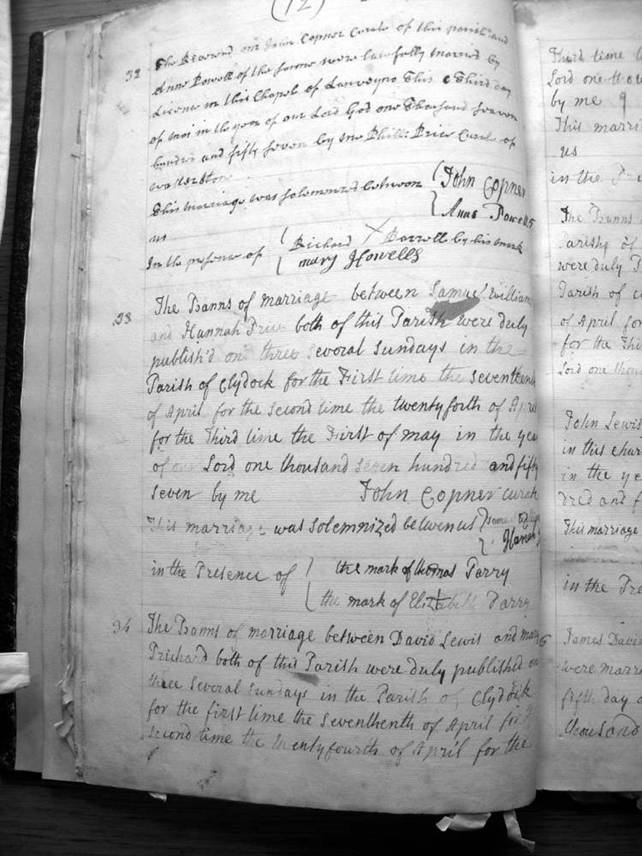 (12)
32 The Reverend mr John Copner Curate of this parish and
Anne Powell of the same were lawfully married by
Licence in this Chapel of Lanveyno this Third day
of in the year of our Lord God one Thousand seven
hundred and fifty seven by me Phillip Price Curate of
Walterstone
This marriage was solemnized between John Copner
us Anne Powell
In the presence of Richard X Parrott by his mark
mary Howells
33 The Banns of marriage between Samuel William
and Hannah Price both of this Parish were duly
publish'd on three several Sundays in the
Parish of Clydock for the First time the seventeenth
of April for the second time the twenty forth of April
for the Third time the First of may in the year
of our Lord one thousand seven hundred and fifty
seven by me John Copner curate
This marriage was solemnized between us
Hannah
in the Presence of the mark of thomas Parry
the mark of Elizabeth Parry
34 The Banns of marriage between David Lewis and mary
Prichard both of this Parish were duly published on
three several sundays in the Parish of Clydock
for the first time the seventhenth of April for the
second time the twentyfourth of April for the
Third time
Lord one thou
by me
This marri
us
in the
The Banns
Parish of
were duly
Parish of
of April for
for the Thir
Lord one thou
John Lewis
in this
in the ye
dred and f
This marriage
in the Pre
James David
were marri
fifth day o
thousand